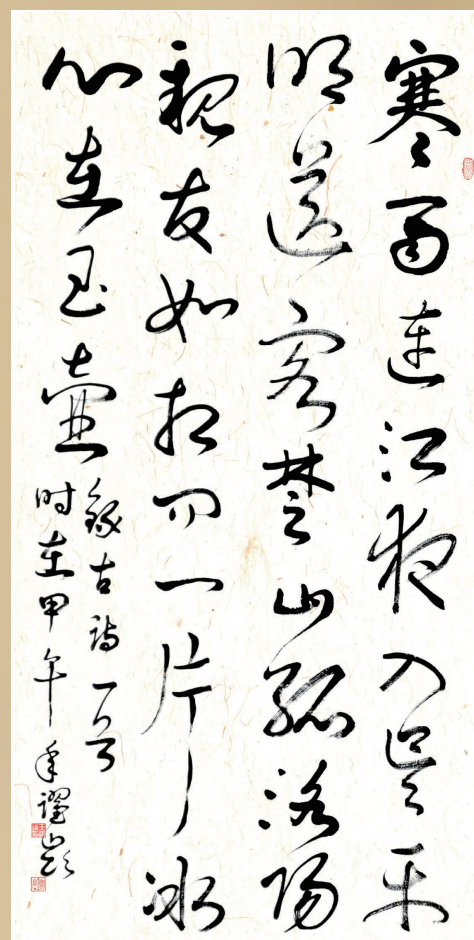 寒雨连江夜入吴平
明送客楚山孤洛阳
亲友如相问一片冰
心在玉壶
录古诗一首
时在甲午年